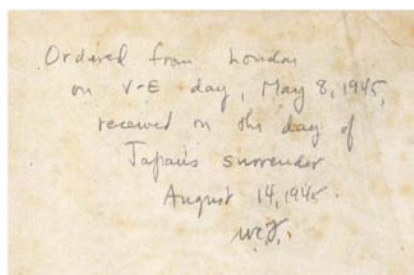 Ordered from London
on V-E day, May 8, 1945,
received on the day of
Japan's surrender
August 14, 1945.